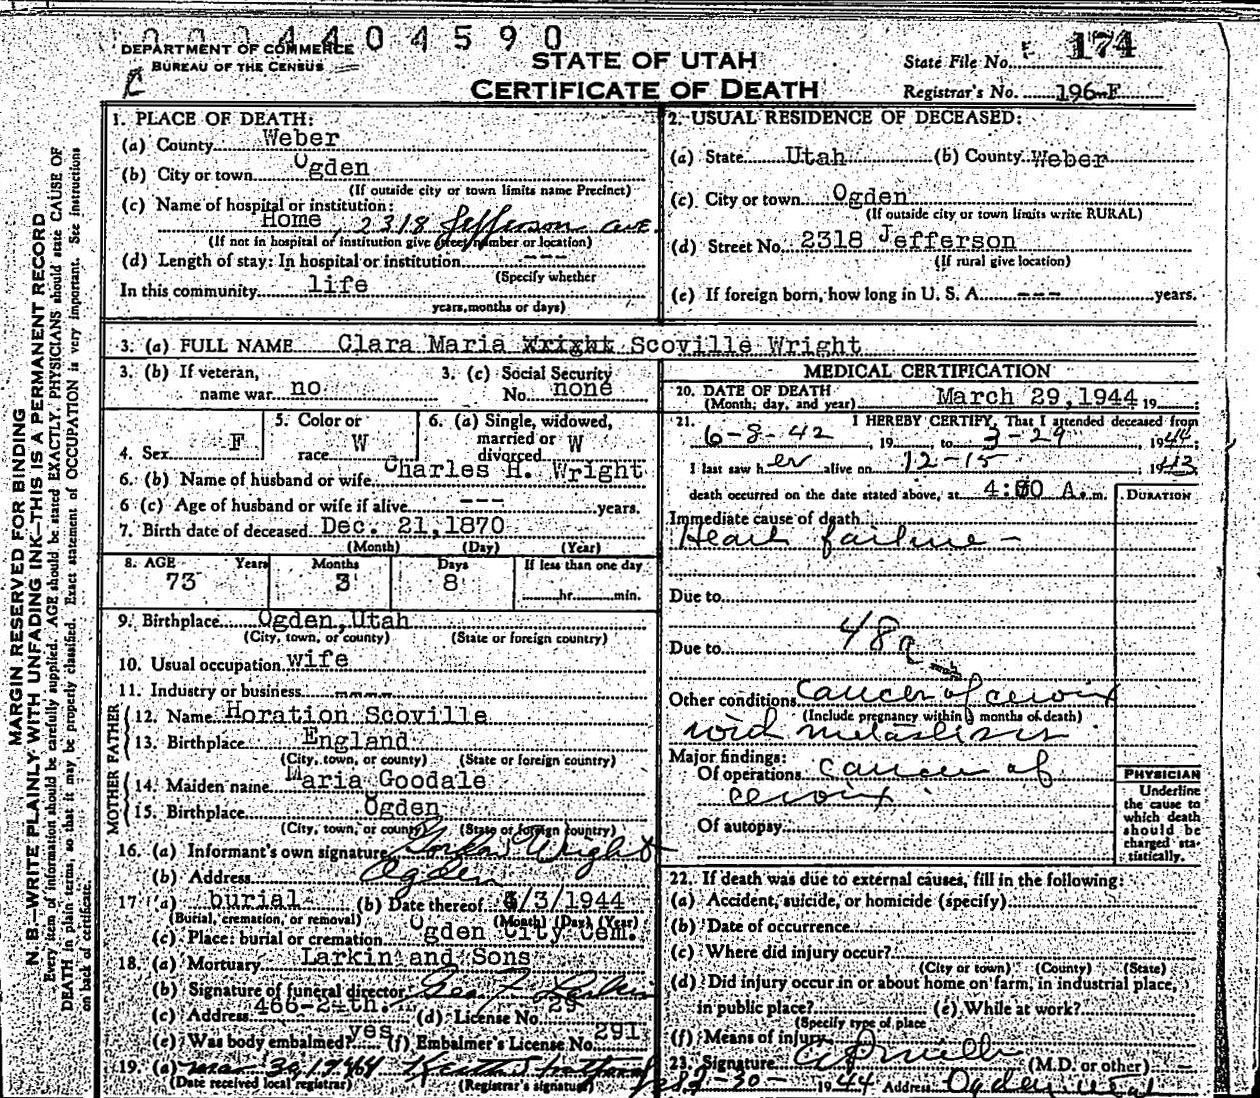 0004404590
DEPARTMENT OF COMMERCE
BUREAU OF THE CENSUS
C
STATE OF UTAH
CERTIFICATE OF DEATH
State File No. 174
Registrar's No. 196-F
MARGIN RESERVED FOR BINDING
N. B.—WRITE PLAINLY, WITH UNFADING INK—THIS IS A PERMANENT RECORD
Every item of information should be carefully supplied. AGE should be stated EXACTLY. PHYSICIANS should state CAUSE OF
DEATH in plain terms, so that it may be properly classified. Exact statement of OCCUPATION is very important. See instructions
on back of certificate.
1. PLACE OF DEATH:
(a) County Weber
(b) City or town Ogden
(If outside city or town limits name Precinct)
(c) Name of hospital or institution:
Home, 2318 Jefferson ave.
(If not in hospital or institution give street number or location)
(d) Length of stay: In hospital or institution ---
(Specify whether
In this community life
years, months or days)
2. USUAL RESIDENCE OF DECEASED:
(a) State Utah (b) County Weber
(c) City or town Ogden
(If outside city or town limits write RURAL)
(d) Street No. 2318 Jefferson
(If rural give location)
(e) If foreign born, how long in U. S. A. --- years.
3. (a) FULL NAME Clara Maria Wright Scoville Wright
3. (b) If veteran,
name war no
3. (c) Social Security
No. none
4. Sex F
5. Color or
race W
6. (a) Single, widowed,
married or
divorced W
6. (b) Name of husband or wife Charles H. Wright
6 (c) Age of husband or wife if alive --- years.
7. Birth date of deceased Dec. 21,1870
(Month) (Day) (Year)
8. AGE Years Months Days If less than one day
73 3 8 hr. min.
9. Birthplace Ogden, Utah
(City, town, or county) (State or foreign country)
10. Usual occupation wife
11. Industry or business ----
FATHER
12. Name Horation Scoville
13. Birthplace England
(City, town, or county) (State or foreign country)
MOTHER
14. Maiden name Maria Goodale
15. Birthplace Ogden
(City, town, or county) (State or foreign country)
16. (a) Informant's own signature Wright
(b) Address Ogden
17 (a) burial (b) Date thereof 4/3/1944
(Burial, cremation, or removal) (Month) (Day) (Year)
(c) Place: burial or cremation Ogden City Cem.
18. (a) Mortuary Larkin and Sons
(b) Signature of funeral director Geo F Larkin
(c) Address 466-24th. (d) License No. 29
(e) Was body embalmed? yes (f) Embalmer's License No. 291
19. (a) Mar 30, 1944
(Date received local registrar) (Registrar's signature)
MEDICAL CERTIFICATION
20. DATE OF DEATH
(Month, day, and year) March 29,1944 19
21. I HEREBY CERTIFY, That I attended deceased from
6-8-42, 19 to 3-29 1944;
I last saw her alive on 12-15, 1943
death occurred on the date stated above, at 4:00 A.m.
DURATION
Immediate cause of death
Heart failure -
Due to
Due to 48a
Other conditions cancer of cervix
(Include pregnancy within 3 months of death)
with metastisis
Major findings:
Of operations cancer of
cervix
Of autopsy
PHYSICIAN
Underline
the cause to
which death
should be
charged sta-
tistically.
22. If death was due to external causes, fill in the following:
(a) Accident, suicide, or homicide (specify)
(b) Date of occurrence
(c) Where did injury occur?
(City or town) (County) (State)
(d) Did injury occur in or about home on farm, in industrial place,
in public place? (e) While at work?
(Specify type of place
(f) Means of injury
23. Signature (M.D. or other)
3-30- 1944 Address Ogden Utah